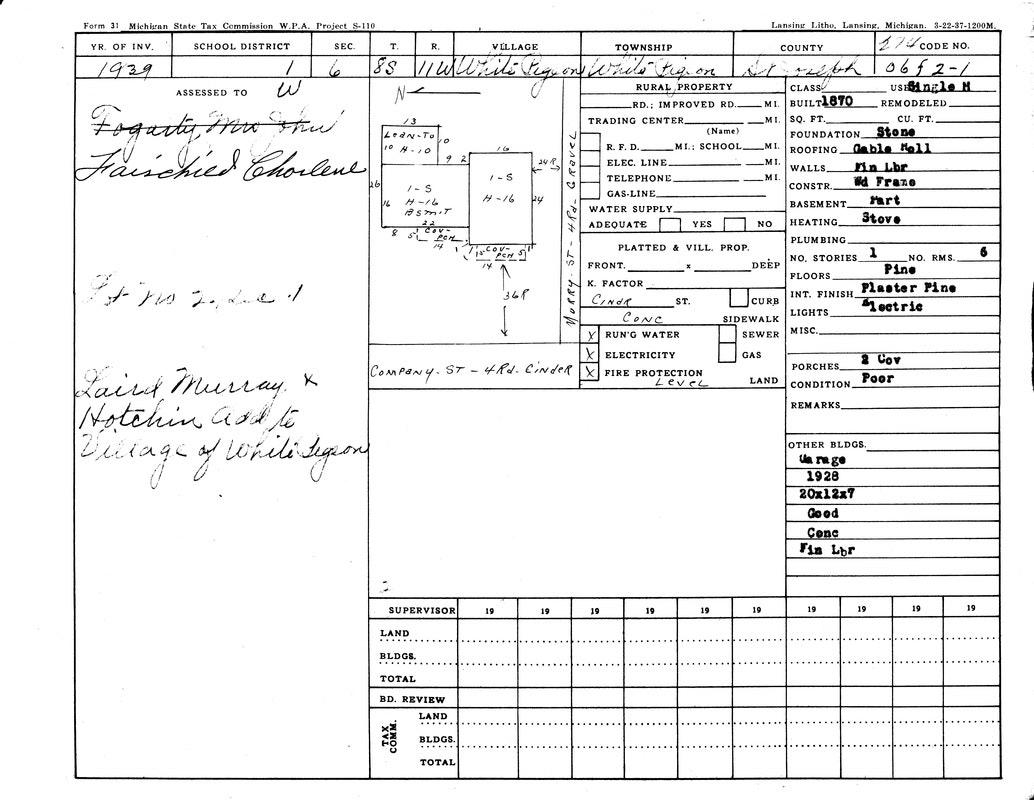 Form 31 Michigan State Tax Commission W.P.A. Project S-110
Lansing Litho, Lansing, Michigan. 3-22-37-1200M.
YR. OF INV. SCHOOL DISTRICT SEC. T. R. VILLAGE TOWNSHIP COUNTY CODE NO.
1939 1 6 8S 11W White Pigeon White Pigeon St Joseph
ASSESSED TO W
Fogarty, Mrs John
Fairchied Charlene
Laird, Murray &
Hotchin Add to
Village of White Pigeon
N
13
Lean-To
10 H-10 10
9 2 16
24R
26 1-S 1-S
16 H-16 H-16 24
Bsmt
22
8 5 Cov- PCH
14
Cov- PCH 5
14
36R
Murry-ST-4Rd-Gravel
Company-ST-4Rd-Cinder
RURAL PROPERTY
RD.; IMPROVED RD. MI.
TRADING CENTER MI.
(Name)
R. F. D. MI.; SCHOOL MI.
ELEC. LINE MI.
TELEPHONE MI.
GAS-LINE
WATER SUPPLY
ADEQUATE YES NO
PLATTED & VILL. PROP.
FRONT. x DEEP
K. FACTOR
Cindr ST. CURB
Conc SIDEWALK
X RUN'G WATER SEWER
X ELECTRICITY GAS
X FIRE PROTECTION
Level LAND
CLASS USE Single H
BUILT 1870 REMODELED
SQ. FT. CU. FT.
FOUNDATION Stone
ROOFING Gable Roll
WALLS Fin Lbr
CONSTR. Wd Frame
BASEMENT Part
HEATING Stove
PLUMBING
NO. STORIES 1 NO. RMS. 6
FLOORS Pine
INT. FINISH Plaster Pine
LIGHTS Electric
MISC.
PORCHES 2 Cov
CONDITION Poor
REMARKS
OTHER BLDGS.
Garage
1928
20x12x7
Good
Conc
Fin Lbr
SUPERVISOR 19 19 19 19 19 19 19 19 19 19
LAND
BLDGS.
TOTAL
BD. REVIEW
TAX COMM.
LAND
BLDGS.
TOTAL